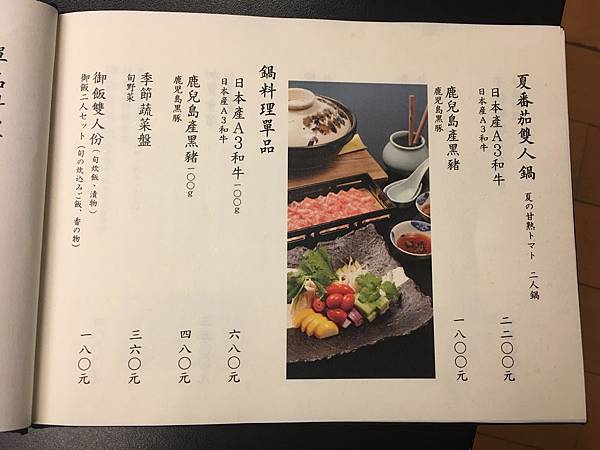 夏番茄雙人鍋 夏の甘熟トマト 二人鍋
日本産A3和牛 二二〇〇元
日本産A3和牛
鹿兒島產黑豬 一八〇〇元
鹿児島黒豚
鍋料理單品
日本產A3和牛 一〇〇g 六八〇元
日本産A3和牛
鹿兒島產黑豬 一〇〇g 四八〇元
鹿児島黒豚
季節蔬菜盤 三六〇元
旬野菜
御飯雙人份（旬炊飯、漬物） 一八〇元
御飯二人セット（旬の炊込みご飯、香の物）